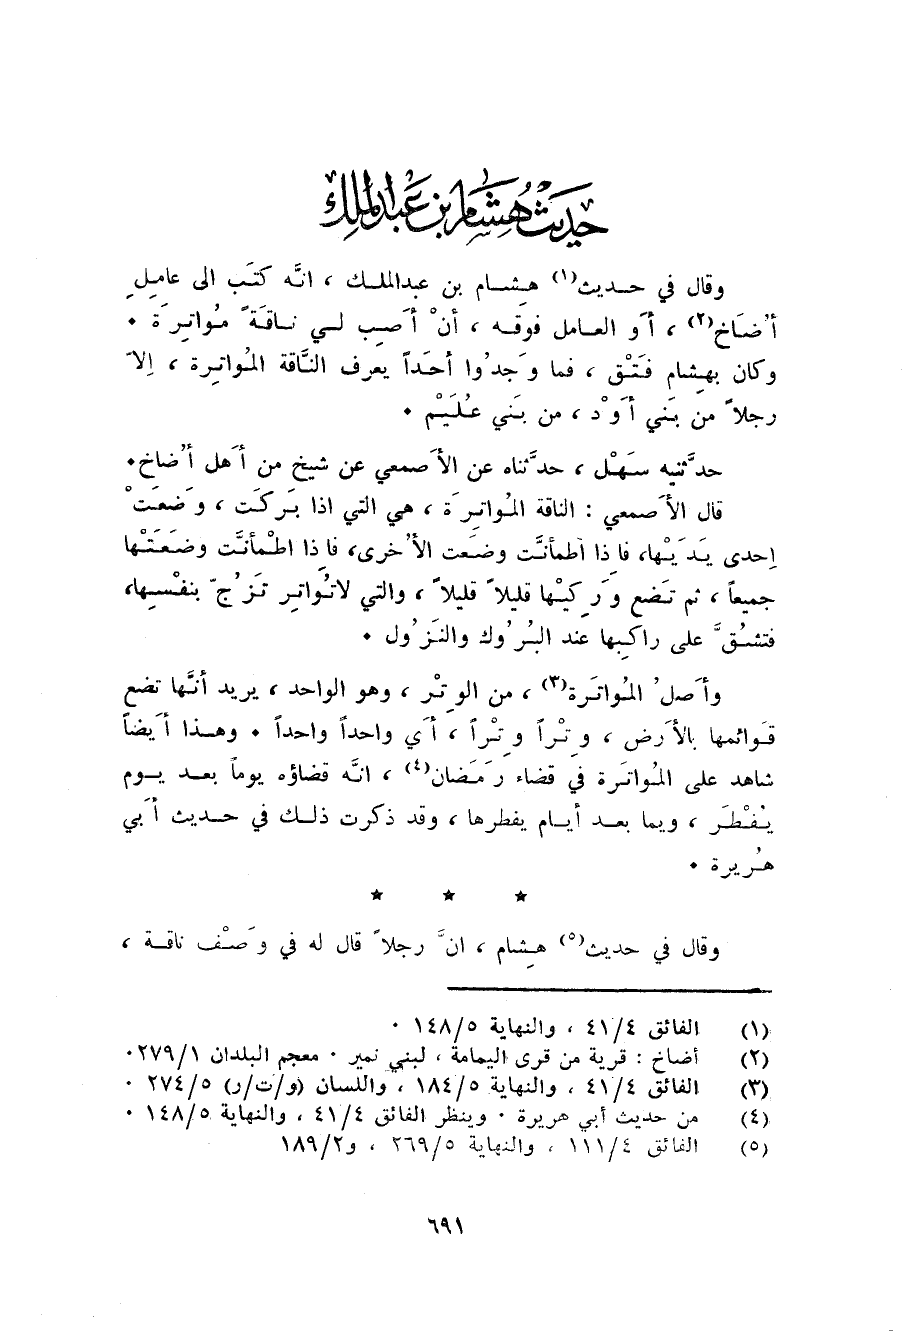 حديث هشام بن عبدالملك
وقال في حديث(١) هِشام بن عبدالملك ، انَّه كتَب الى عامِلِ
أُضَاخ(٢) ، أَو العامل فوقه ، أنْ أَصِب لي ناقَةً مُواتِرَة .
وكان بهِشام فَتْق ، فما وَجَدُوا أحَداً يعرف النَّاقة المُواتِرة ، اِلاَّ
رجلاً من بَني أَوْد ، من بَني عُلَيْم .
حدَّثنيه سَهْل ، حدَّثناه عن الأَصمعي عن شيخ من أَهل أُضاخ.
قال الأَصمعي : الناقة المُواتِرَة ، هي التي اذا بَركَت ، وَضعَتْ
اِحدى يَدَيْها، فاذا اطمأنَّت وضَعت الأُخرى، فاذا اطْمأنَّت وضَعَتْها
جميعاً ، ثم تَضع وَرِكيْها قليلاً قليلاً ، والتي لاتُواتِر تَزُجّ بنفْسِها،
فتشُقَّ على راكِبها عند البُرُوك والنزُول .
وأَصلُ المُواتَرة(٣) ، من الوِتْر ، وهو الواحد ، يريد أنَّها تضع
قَوائمها بالأَرض ، وِتْراً وِتْراً ، أَي واحداً واحداً . وهذا أَيضاً
شاهد على المُواتَرة في قضاء رَمَضان(٤) ، انَّه قضاؤه يوماً بعد يوم
يُفْطَر ، ويما بعد أيام يفطرها ، وقد ذكرت ذلك في حديث أَبي
هُريرة .
★ ★ ★
وقال في حديث(٥) هِشام ، انَّ رجلاً قال له في وَصْف ناقة ،
(١) الفائق ٤١/٤ ، والنهاية ١٤٨/٥ .
(٢) أضاخ : قرية من قرى اليمامة ، لبني نمير . معجم البلدان ٢٧٩/١.
(٣) الفائق ٤١/٤ ، والنهاية ١٨٤/٥ ، واللسان (و/ت/ر) ٢٧٤/٥ .
(٤) من حديث أبي هريرة . وينظر الفائق ٤١/٤ ، والنهاية ١٤٨/٥ .
(٥) الفائق ١١١/٤ ، والنهاية ٢٦٩/٥ ، و١٨٩/٢
٦٩١